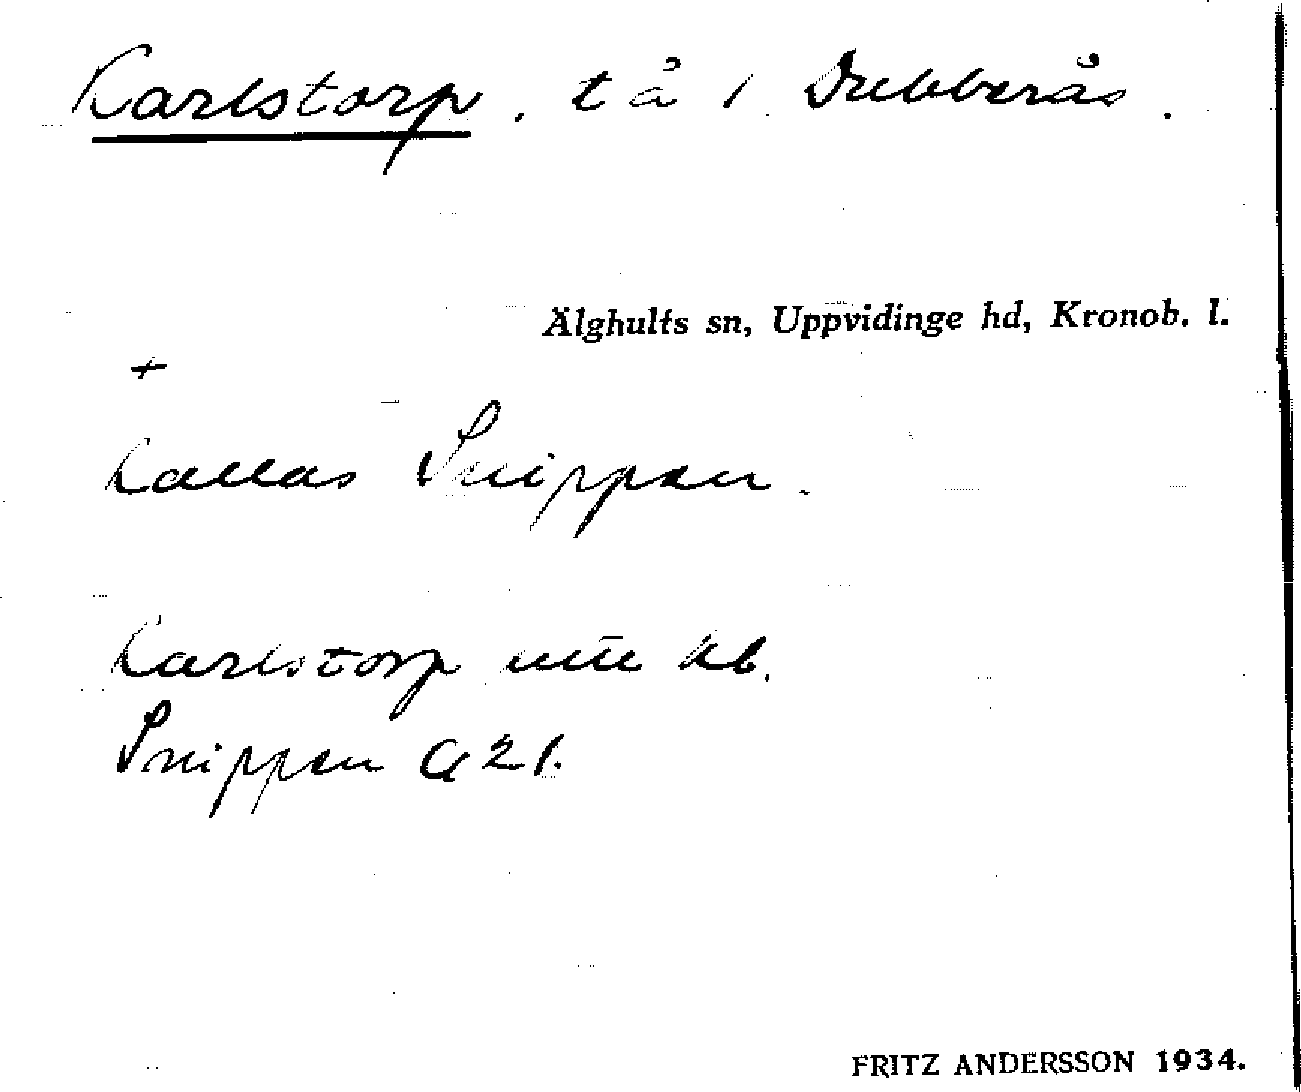 Karlstorp, tå 1 Dubberås.
Älghults sn, Uppvidinge hd, Kronob. l.
+
Kallas Snippen.
Karlstorp kb.
Snippen a 21.
FRITZ ANDERSSON 1934.